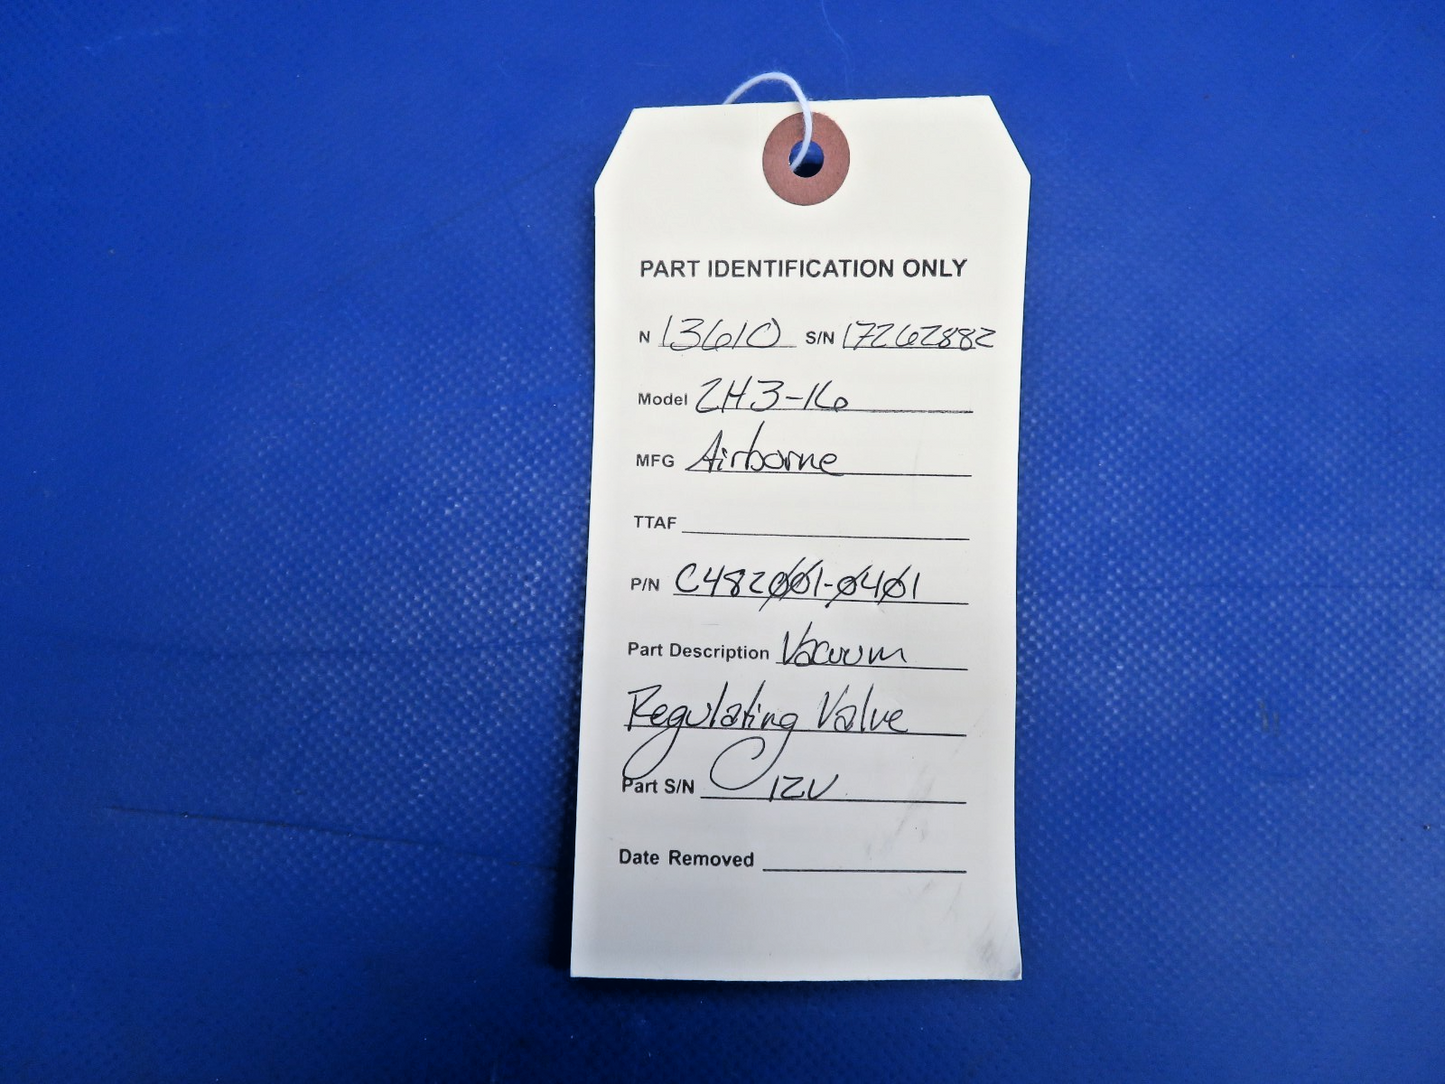 PART IDENTIFICATION ONLY
N 13610 S/N 17262882
Model 2H3-16
MFG Airborne
TTAF
P/N C482001-0401
Part Description Vacuum
Regulating Valve
Part S/N 12V
Date Removed